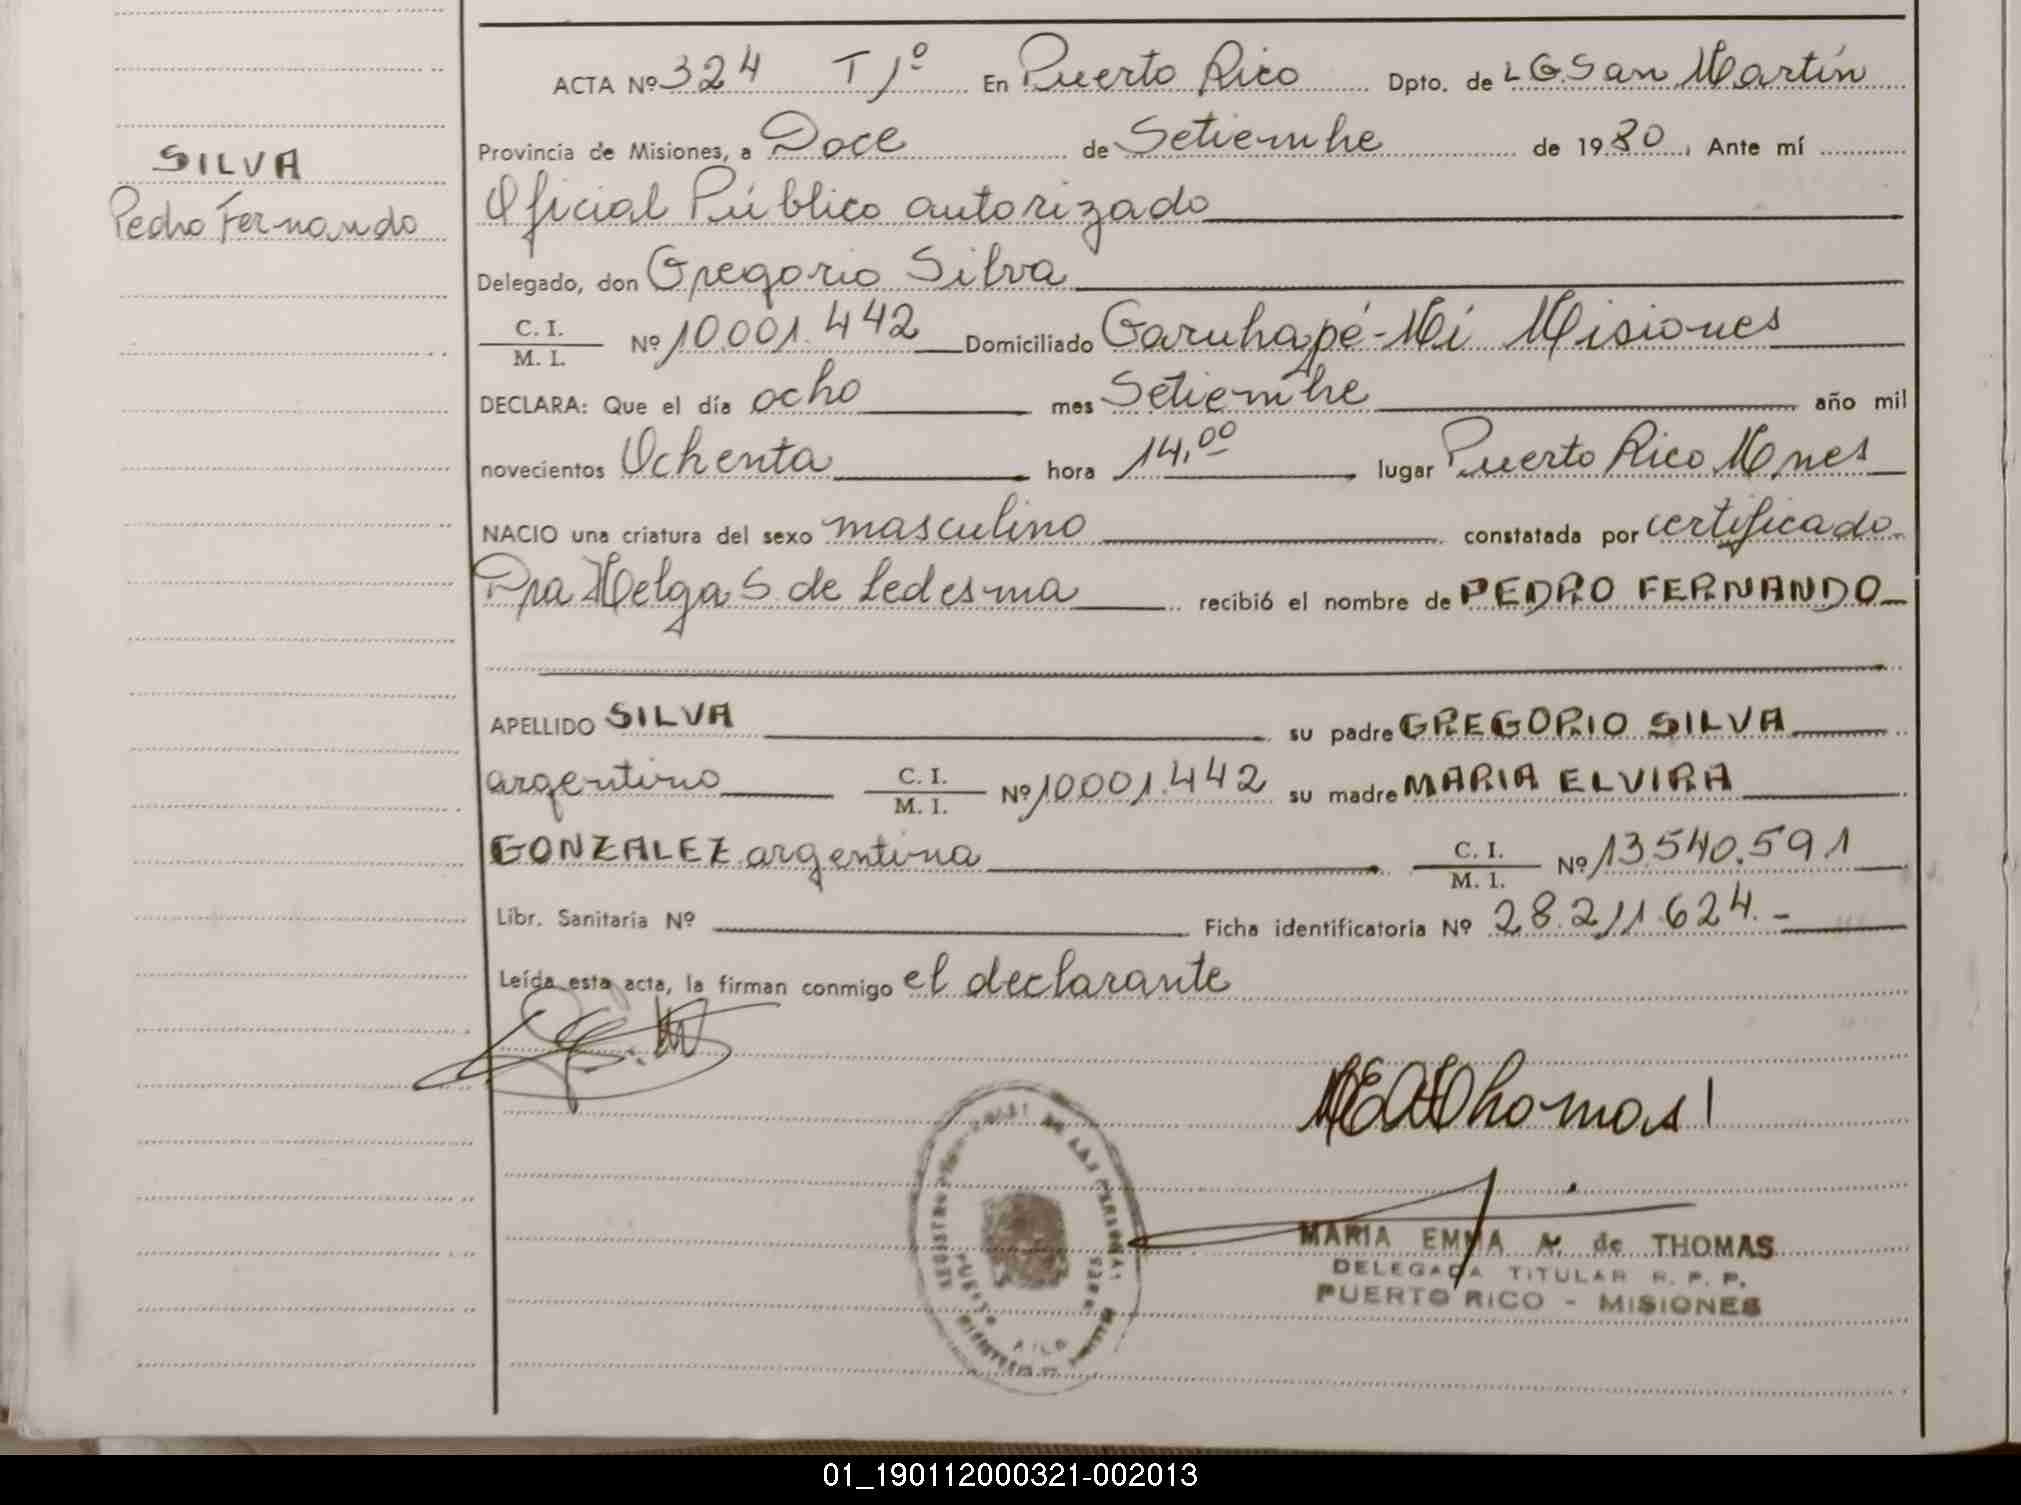 ACTA Nº 324 T 1º En Puerto Rico Dpto. de L G San Martín
Provincia de Misiones, a Doce de Setiembre de 1980, Ante mí
SILVA
Pedro Fernando
Oficial Público autorizado
Delegado, don Gregorio Silva
C. I.
M. I.
Nº 10.001.442 Domiciliado Garuhapé-Mí Misiones
DECLARA: Que el día ocho mes Setiembre año mil
novecientos Ochenta hora 14,00 lugar Puerto Rico Mnes
NACIO una criatura del sexo masculino constatada por certificado
Dra Helga S. de Ledesma recibió el nombre de PEDRO FERNANDO
APELLIDO SILVA su padre GREGORIO SILVA
argentino C. I. M. I. Nº 10.001.442 su madre MARIA ELVIRA
GONZALEZ argentina C. I. M. I. Nº 13.540.591
Libr. Sanitaria Nº Ficha identificatoria Nº 28.211.624.-
Leída esta acta, la firman conmigo el declarante
Thomas
MARIA EMMA A. de THOMAS
DELEGADA TITULAR R. P. P.
PUERTO RICO - MISIONES
01_190112000321-002013